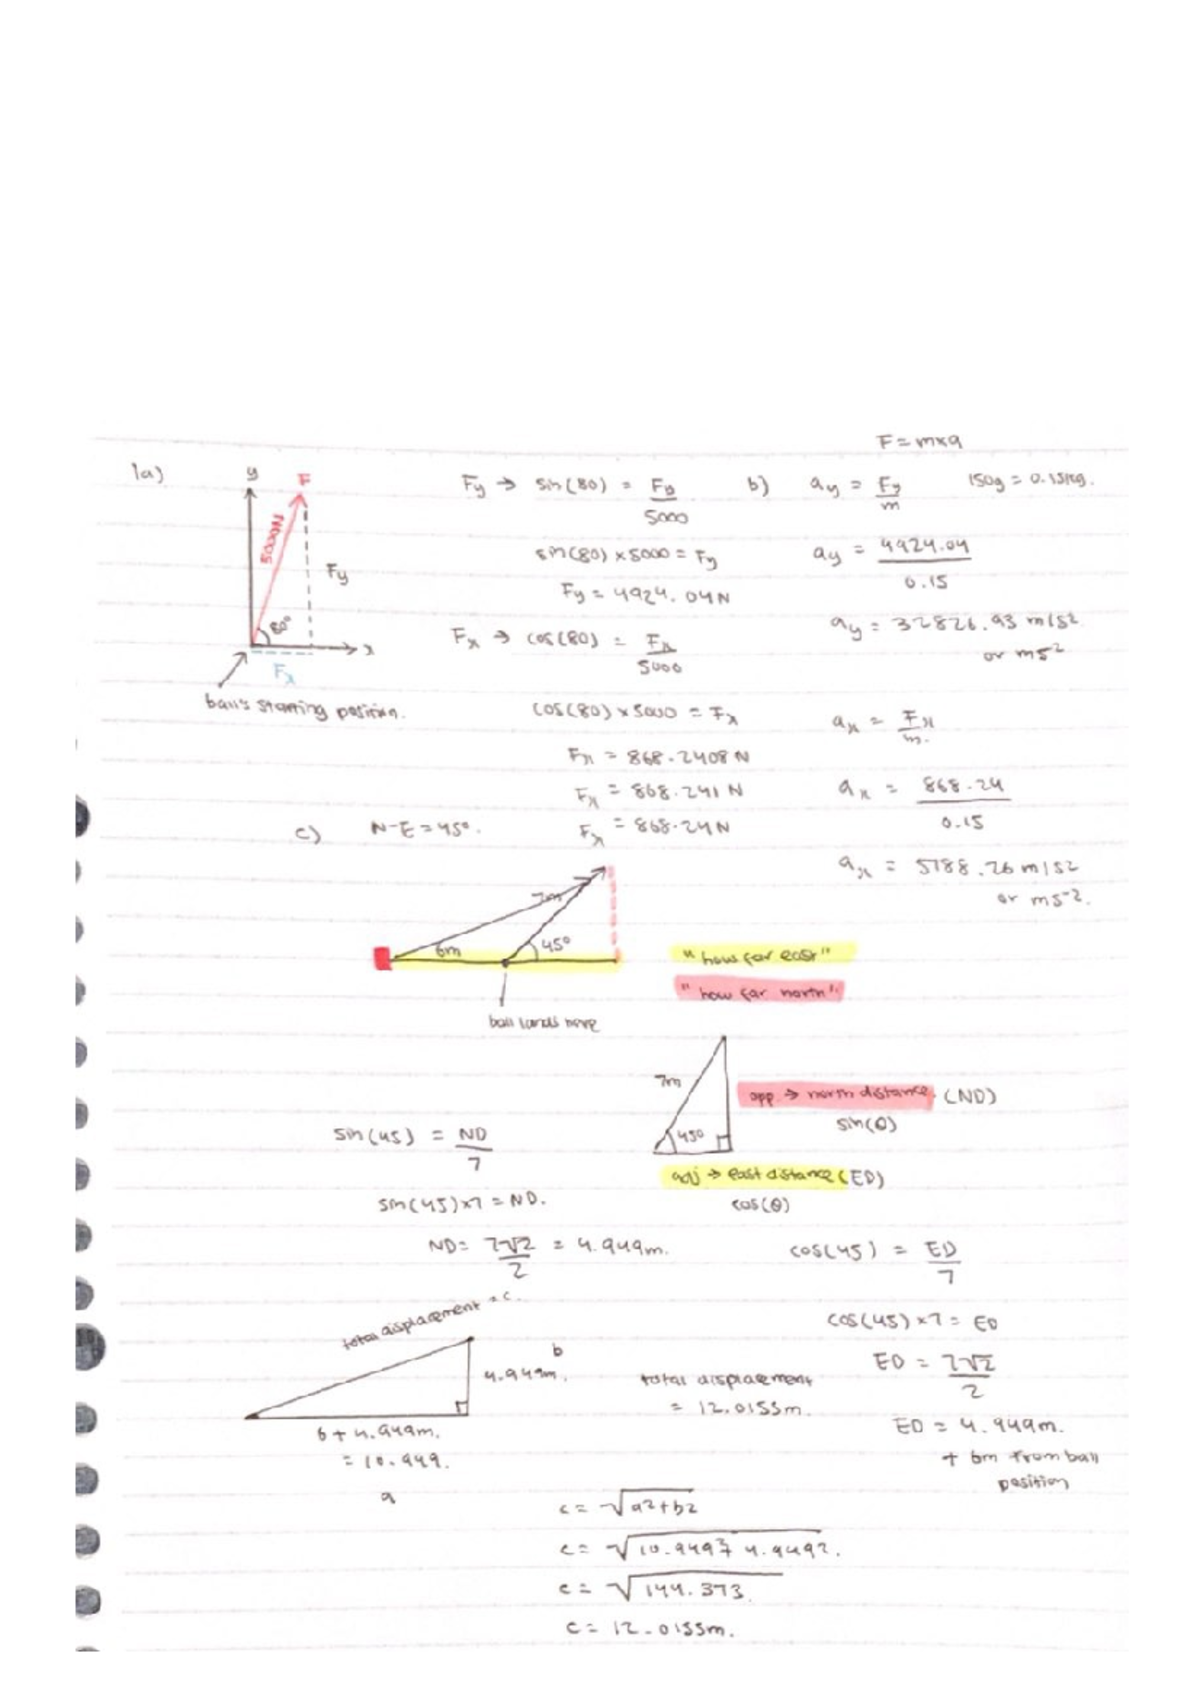 F = m×a
1a)
y
F
5000N
Fy
80°
x
Fx
ball's starting position.
Fy → sin(80) = Fy
5000
sin(80) × 5000 = Fy
Fy = 4924.04N
Fx → cos(80) = Fx
5000
cos(80) × 5000 = Fx
Fx = 868.2408 N
Fx = 868.241 N
Fx = 868.24N
b) ay = Fy
m
150g = 0.15kg.
ay = 4924.04
0.15
ay = 32826.93 m/s2
or ms-2
ax = Fx
m.
ax = 868.24
0.15
ax = 5788.26 m/s2
or ms-2.
c) N-E = 45°.
7m
6m
45°
ball lands here
"how far east"
"how far north"
7m
45°
opp → north distance. (ND)
sin(θ)
adj → east distance (ED)
cos(θ)
sin(45) = ND
7
sin(45)×7 = ND.
ND = 7√2 = 4.949m.
2
cos(45) = ED
7
cos(45)×7 = ED
ED = 7√2
2
ED = 4.949m.
+ 6m from ball
position
total displacement = c.
b
4.949m.
6 + 4.949m.
= 10.949.
a
total displacement
= 12.0155m.
c = √a2+b2
c = √10.9492+ 4.9492.
c = √144.373
c = 12.0155m.